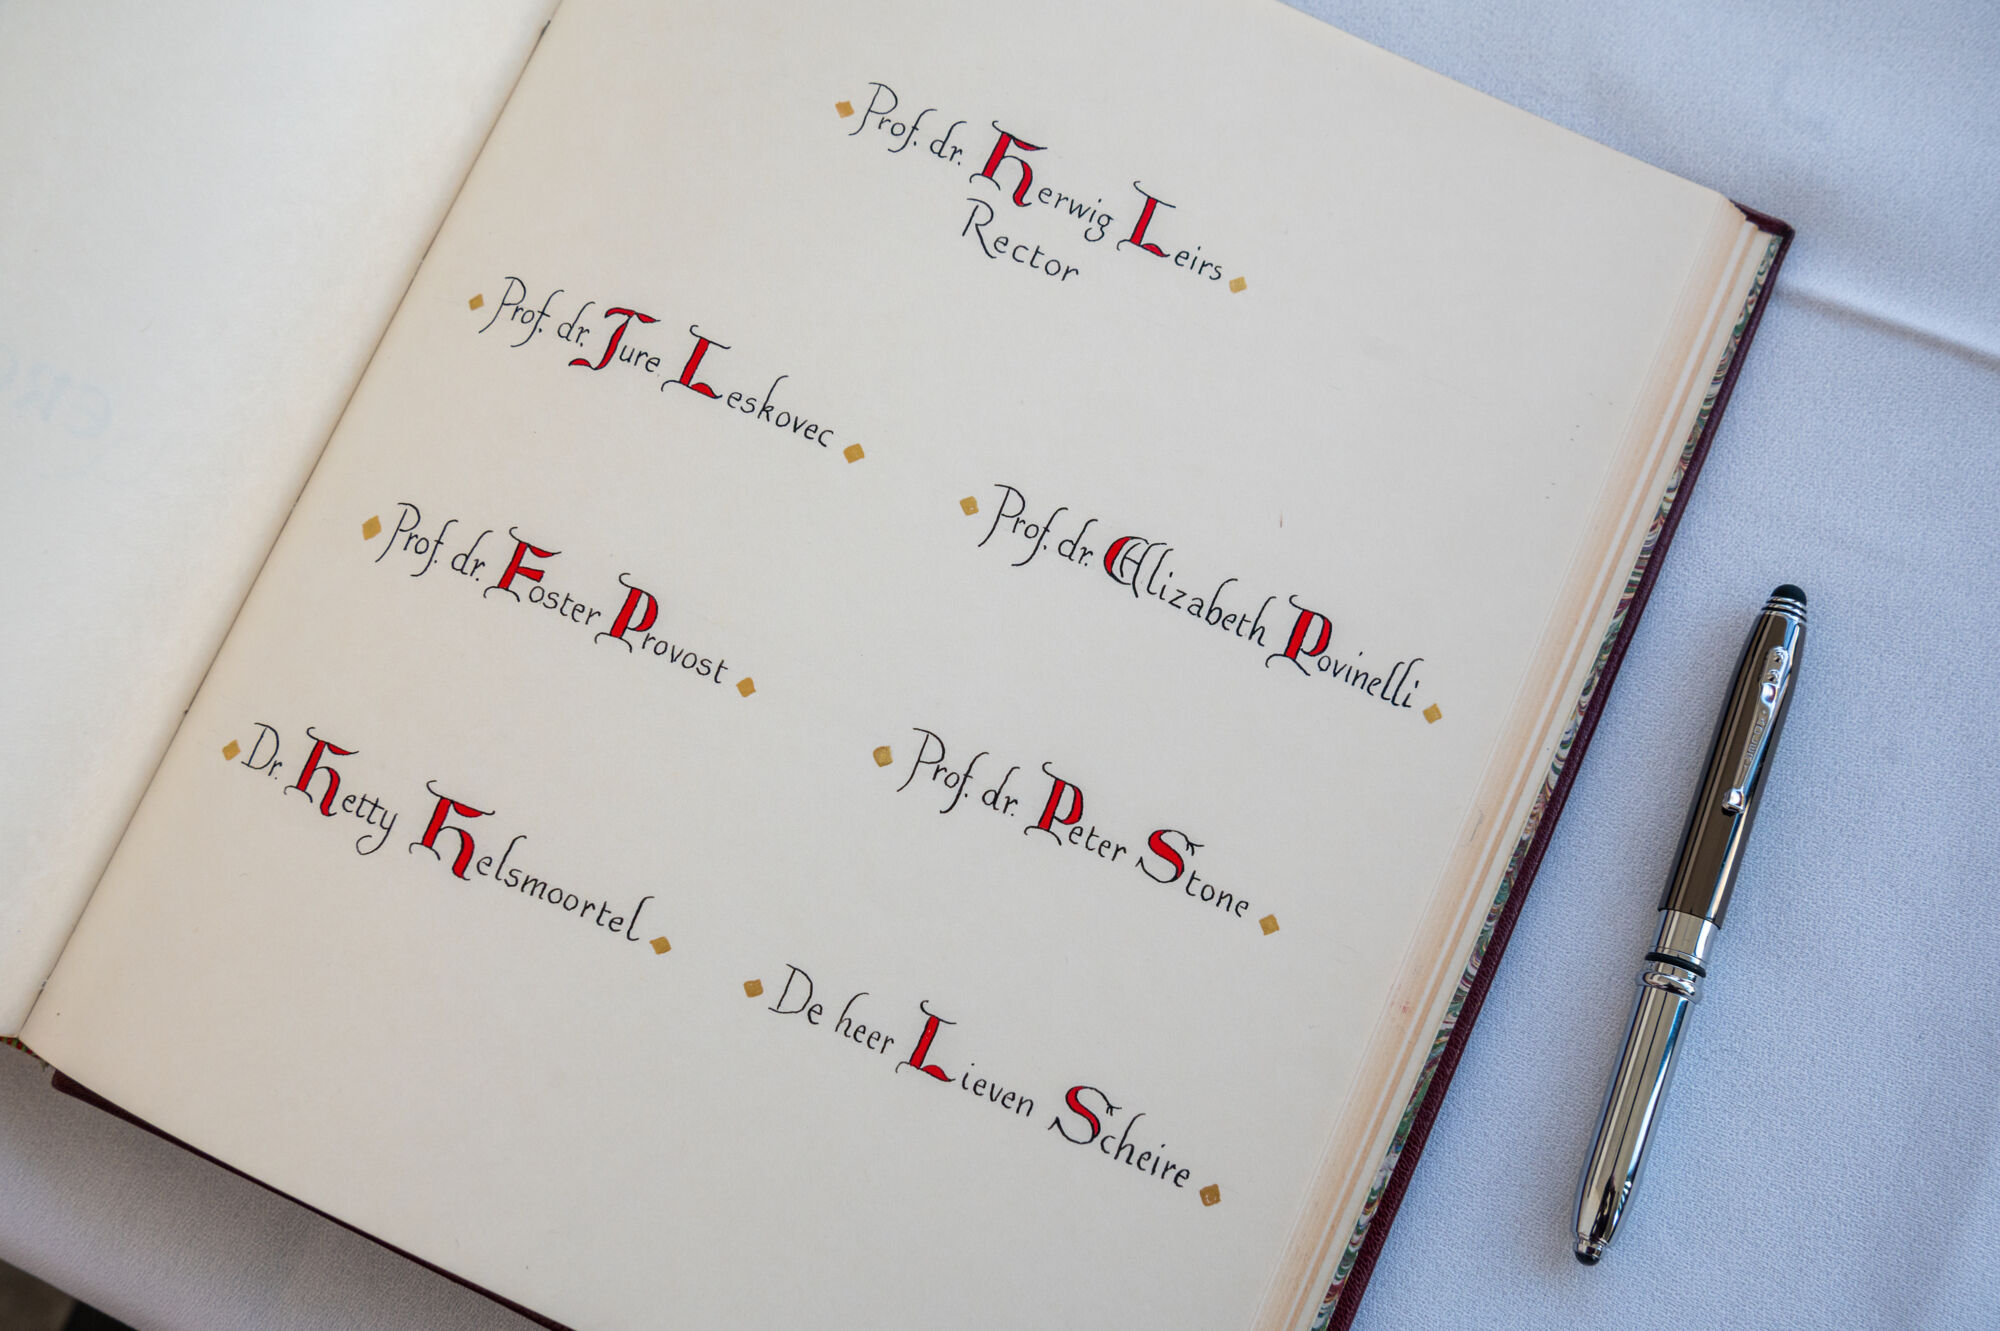 Prof. dr. Herwig Leirs
Rector
Prof. dr. Jure Leskovec
Prof. dr. Elizabeth Povinelli
Prof. dr. Foster Provost
Prof. dr. Peter Stone
Dr. Hetty Helsmoortel
De heer Lieven Scheire